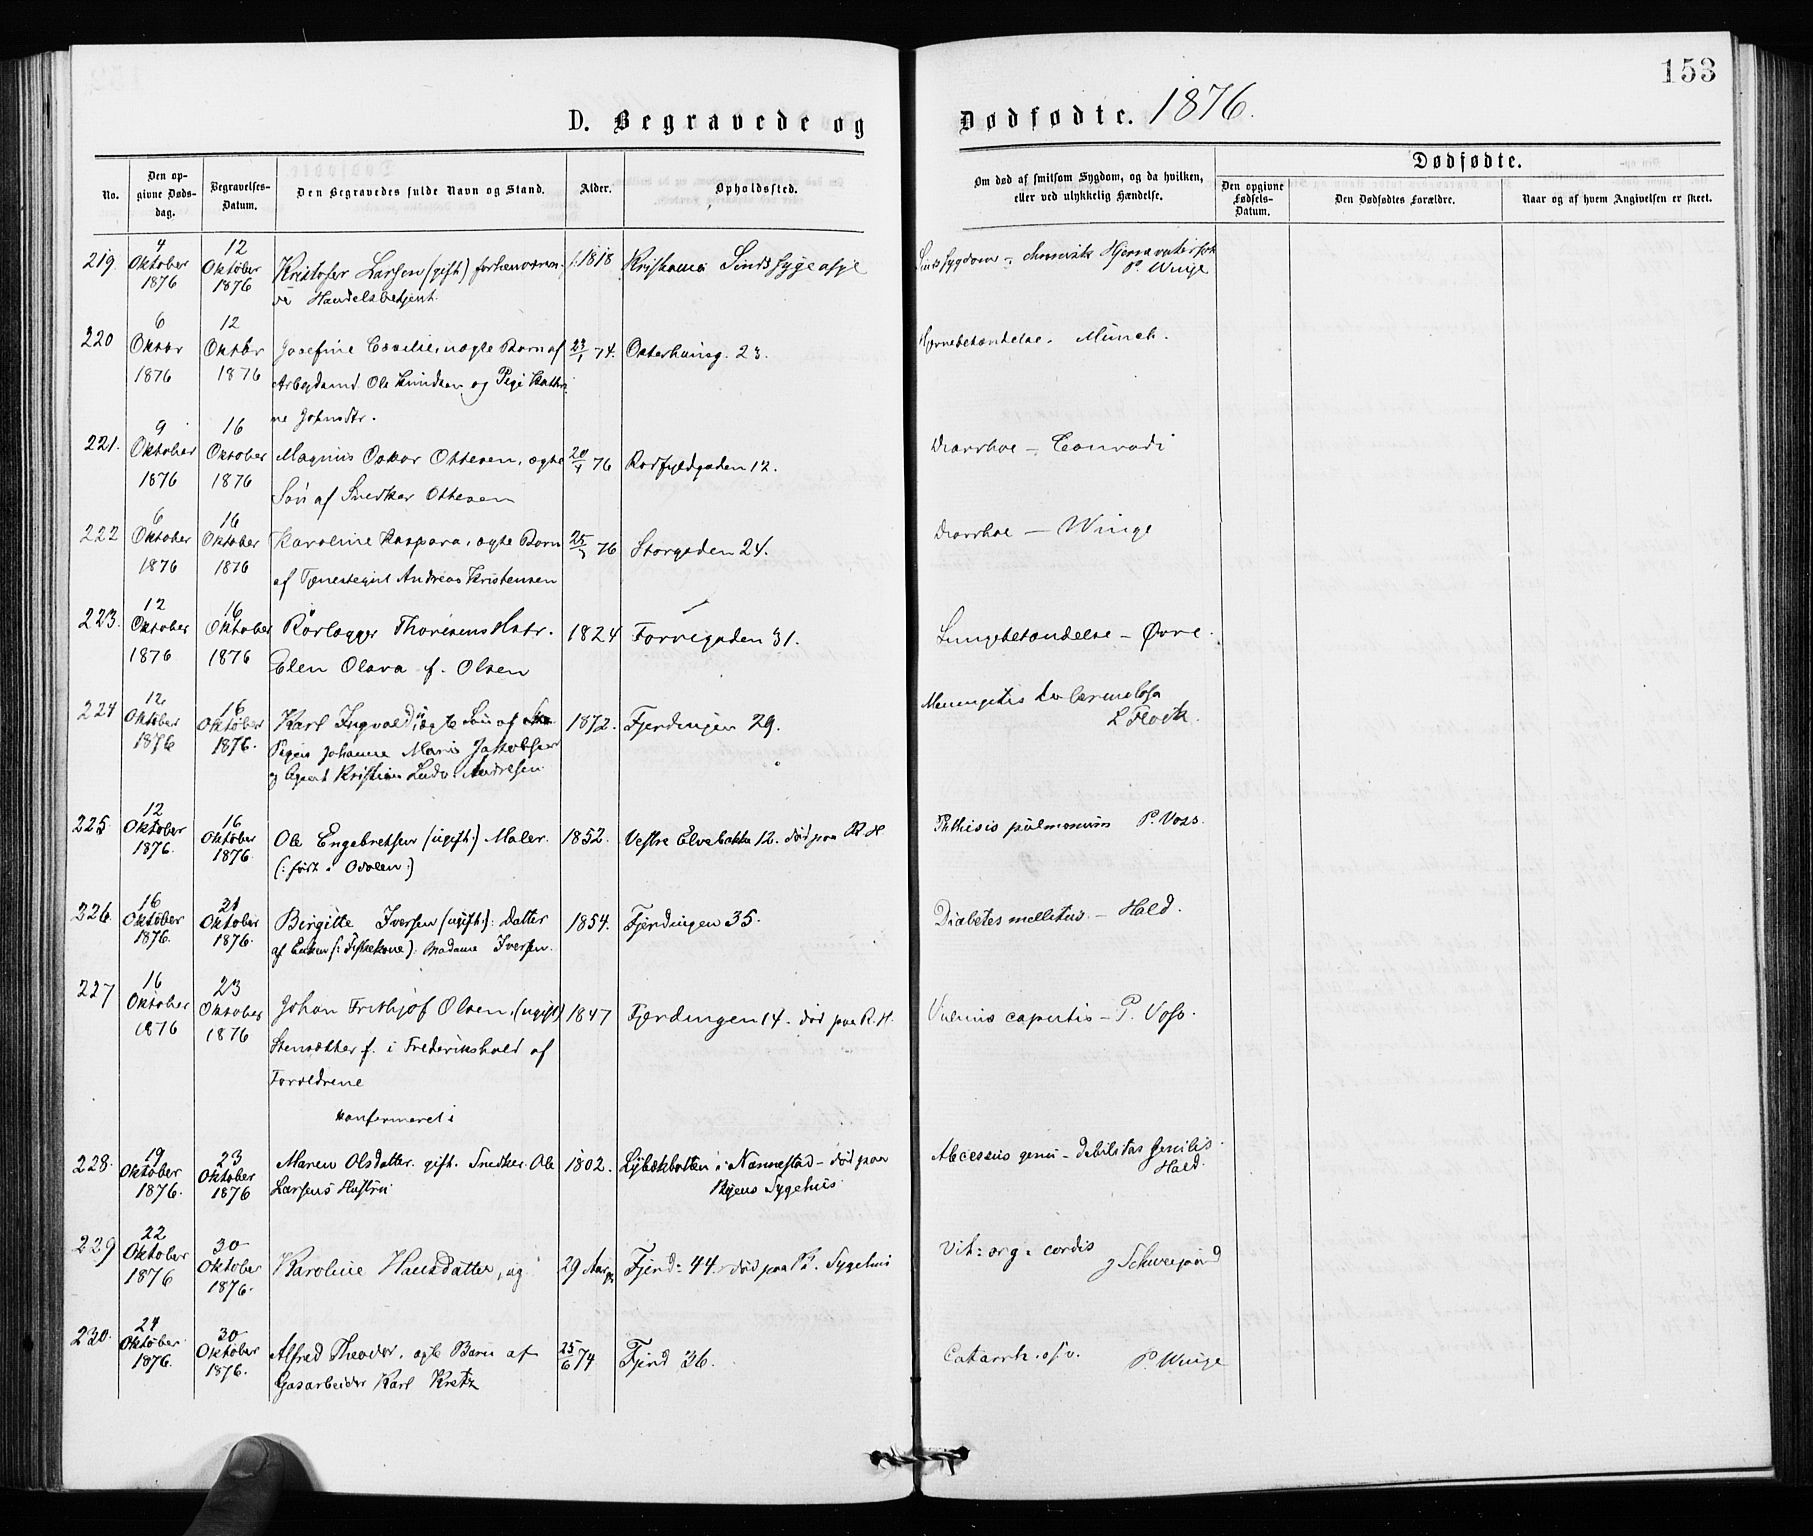 153
D. Begravede og Dødfødte. 1876.
No.
Den op-
givne Døds-
dag.
Begravelses-
Datum.
Den Begravedes fulde Navn og Stand.
Alder.
Opholdssted.
Om død af smitsom Sygdom, og da hvilken,
eller ved ulykkelig Hændelse.
Dødfødte.
Den opgivne
Fødsels-
Datum.
Den Dødfødtes Forældre.
Naar og af hvem Angivelsen er skeet.
219. 4 Oktober 1876 12 Oktober 1876 Kristofer Larsen (gift) forhenværen-
de Handelsbetjent. f. 1818 Kristiania Sindssygeasyl
Sindssygdom - chronisk
P. Winge
220 6 Oktbr 1876 12 Oktbr 1876 Josefine Cecilie, uægte Barn af 23/1 74. Osterhausg. 23. Hjernebetændelse. Münch.
Arbejdsmd. Ole Knudsen og Pige Kathri
ne Johnsdtr.
221. 9 Oktober 1876 16 Oktober 1876 Magnus Oskar Ottesen, ægte 20/1 76 Rodfyldgaden 12. Diarrhoe - Conradi
Søn af Snedker Ottesen
222 6 Oktober 1876 16 Oktober 1876 Karoline Kaspara, ægte Barn 25/7 76 Storgaden 24. Diarrhoe - Winge
af Tjenestegut Andreas Kristensen
223. 12 Oktober 1876 16 Oktober 1876 Rørlægger Thoresens Hstr. 1824 Torvegaden 31. Lungebetændelse - Øvre.
Elen Olava f. Olsen
224 12 Oktober 1876 16 Oktober 1876. Karl Ingvald, uægte Søn af 1872. Fjerdingen 29. Meningitis tuberculosa
Pigen Johanne Marie Jakobsen
og Agent Kristian Ludv. Andresen
225 12 Oktober 1876. 16 Oktober 1876. Ole Engebretsen (ugift:) Maler. 1852. Vestre Elvebakke 12. død paa R. H. Phthisis pulmonum P. Voss.
(: født i Odalen:)
226. 16 Oktober 1876. 21 Oktober 1876. Birgitte Iversen (ugift:). Datter 1854. Fjerdingen 35. Diabetes mellitus. - Hald.
af Enken (: Fiskekone:) Madame Iversen.
227 16 Oktober 1876 23 Oktober 1876 Johan Frithjof Olsen, (ugift) 1847 Fjerdingen 14. død paa R. H. Vulnus capitis - P. Voss.
Stensætter f. i Frederikshald af
Forældrene
konfirmeret i
228. 19 Oktober 1876. 23 Oktober 1876 Maren Olsdatter. gift. Snedker Ole 1802. i Nannestad - død paa Abcessus genu - debilitas senilis.
Larsens Hustru Byens Sygehus Hald.
229 22 Oktober 1876 30 Oktober 1876. Karoline Hansdatter, ug. 29 Aar Fjerd: 44. død paa K. Sygehus Vit: org: cordis
230. 24 Oktober 1876. 30 Oktober 1876. Alfred Theodor, ægte Barn af 25/6 74 Fjerd 36. Catarrh. P. Winge
Gasarbeider Karl Kretz